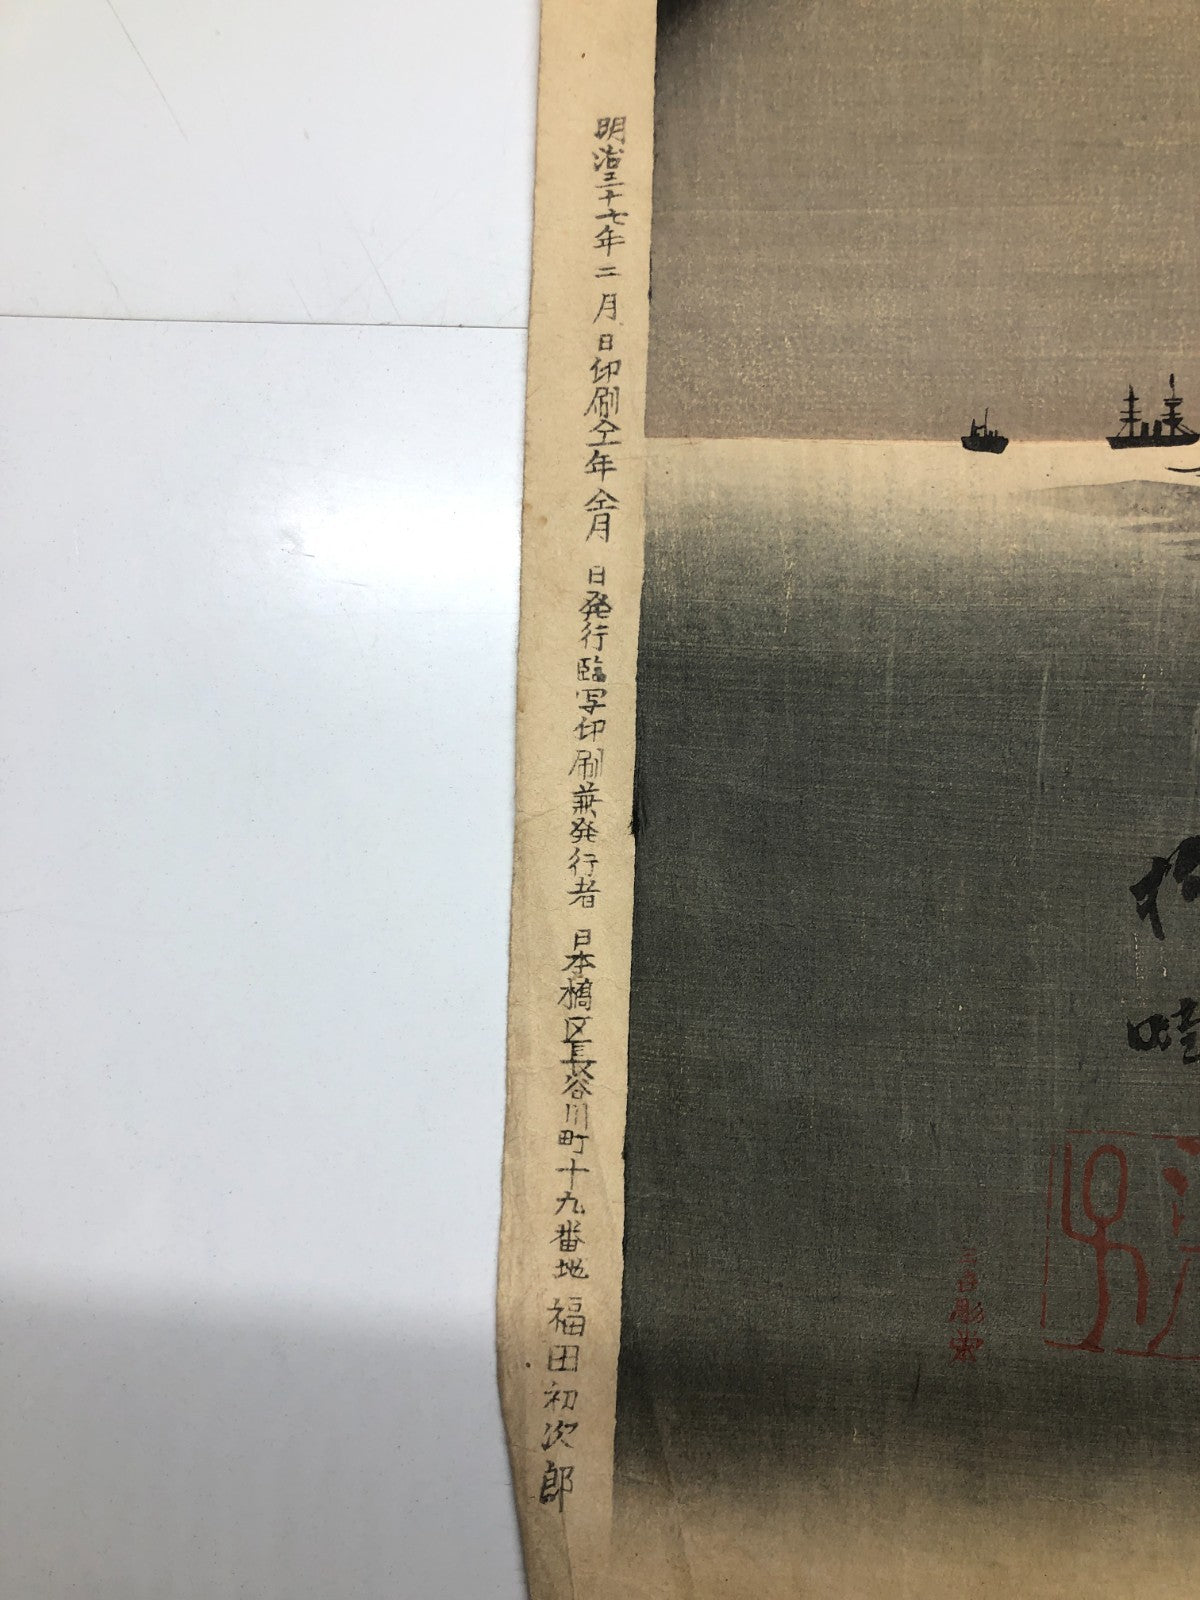 明治三十七年二月 日印刷仝年仝月 日発行臨写印刷兼発行者 日本橋区長谷川町十九番地 福田初次郎